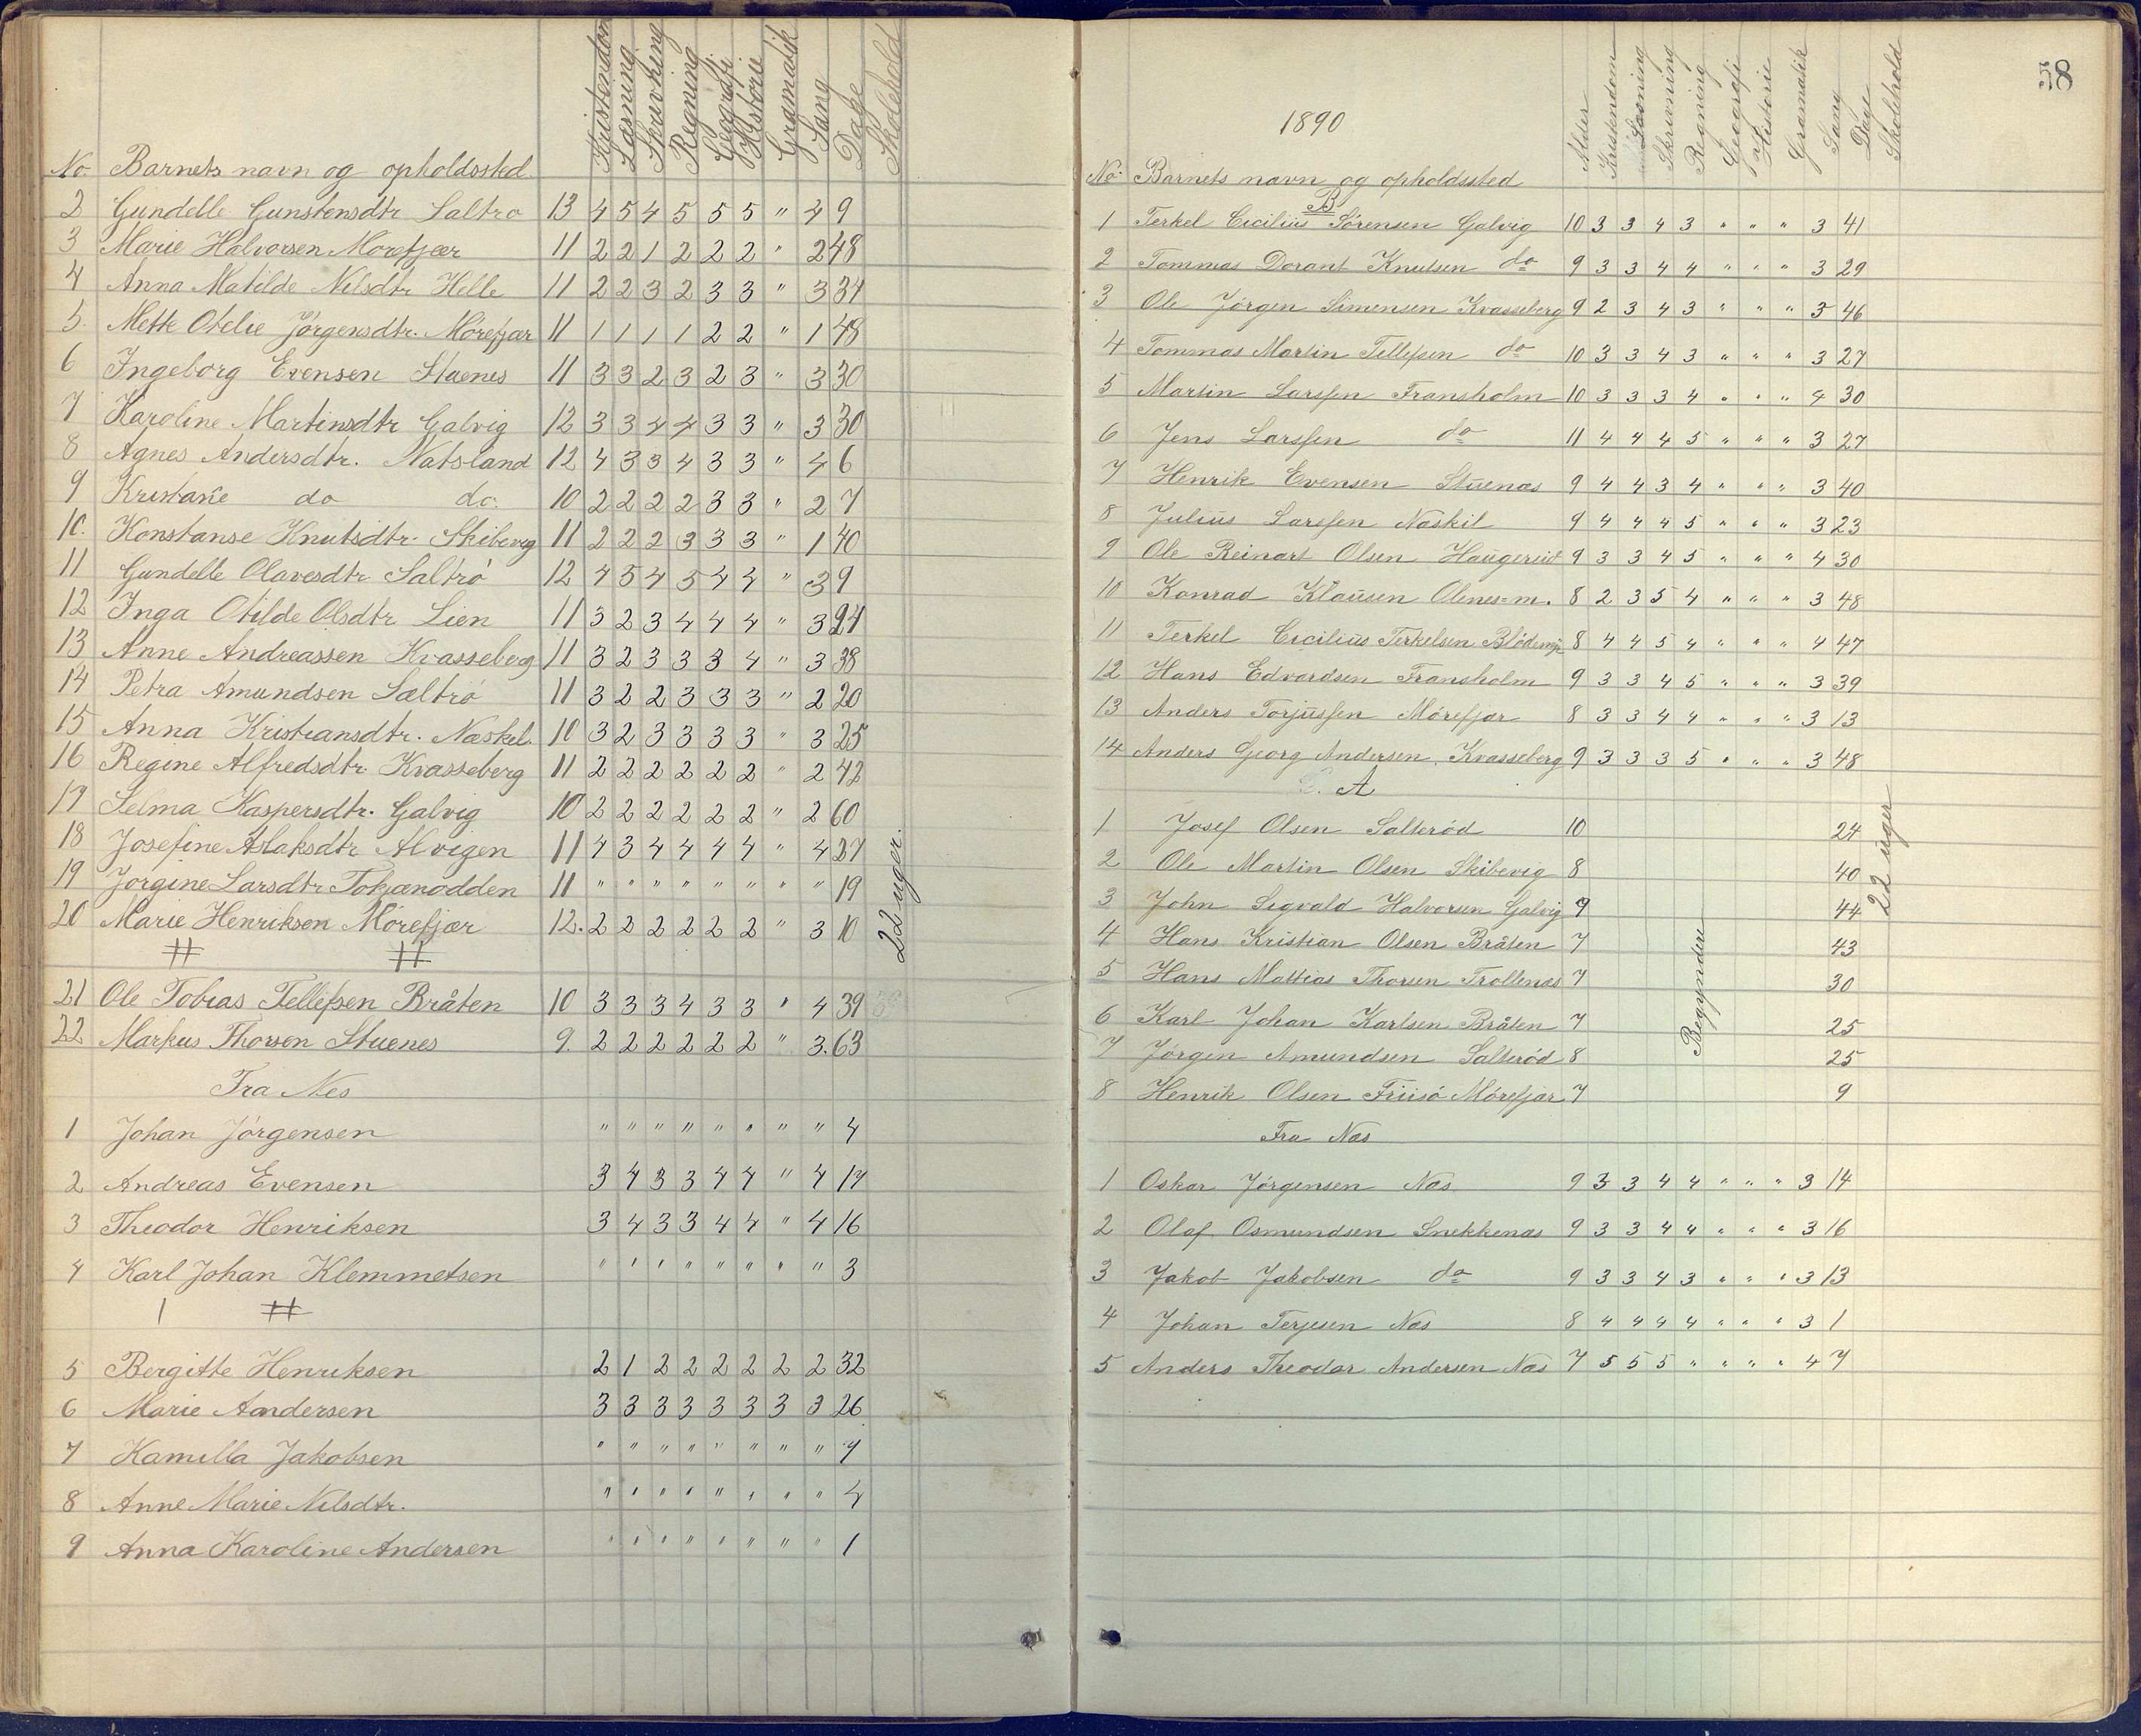 Kristendom Læsning Skrivning Regning Geografi Historie Gramatik Sang Dage Skolehold
No. Barnets navn og opholdssted.
2 Gundelle Gunstensdtr Saltro 13 4 5 4 5 5 5 " 4 9
3 Marie Halvorsen Morefjær 11 2 2 1 2 2 2 " 2 48
4 Anna Matilde Nilsdtr Helle 11 2 2 3 2 3 3 " 3 34
5. Mette Otelie Jørgensdtr. Mörefjær 11 1 1 1 1 2 2 " 1 48
6 Ingeborg Evensen Stuenes 11 3 3 2 3 2 3 " 3 30
7 Karoline Martinsdtr Galvig 12 3 3 4 4 3 3 " 3 30
8 Agnes Andersdtr. Natsland 12 4 3 3 4 3 3 " 4 6
9 Kristane do do. 10 2 2 2 2 3 3 " 2 7
10. Konstanse Knutsdtr. Skibevig 11 2 2 2 3 3 3 " 1 40
11 Gundelle Olavesdtr Saltrö 12 4 5 4 5 4 4 " 3 9
12 Inga Otilde Olsdtr Lien 11 3 2 3 4 4 4 " 3 24
13 Anne Andreassen Kvasseberg 11 3 2 3 3 3 4 " 3 38
14 Petra Amundsen Sæltrö 11 3 2 2 3 3 3 " 2 20
15 Anna Kristiansdtr. Næskel. 10 3 2 3 3 3 3 " 3 25
16 Regine Alfredsdtr. Kvasseberg 11 2 2 2 2 2 2 " 2 42
17 Selma Kaspersdtr. Galvig 10 2 2 2 2 2 2 " 2 60
18 Josefine Aslaksdtr Alvigen 11 4 3 4 4 4 4 " 4 37
19 Jorgine Larsdtr Tokjænodden 11 " " " " " " " " 19
20 Marie Henriksen Mörefjær 12. 2 2 2 2 2 2 " 3 10
22 uger.
21 Ole Tobias Tellefsen Bråten 10 3 3 3 4 3 3 " 4 39
22 Markus Thorsen Stuenes 9. 2 2 2 2 2 2 " 3. 63
Fra Nes
1 Johan Jörgensen " " " " " " " " 4
2 Andreas Evensen 3 4 3 3 4 4 " 4 17
3 Theodor Henriksen 3 4 3 3 4 4 " 4 16
4 Karl Johan Klemmetsen " " " " " " " " 3
5 Bergitte Henriksen 2 1 2 2 2 2 2 2 32
6 Marie Aandersen 3 3 3 3 3 3 3 3 26
7 Kamilla Jakobsen " " " " " " " " 7
8 Anne Marie Nilsdtr. " " " " " " " " 4
9 Anna Karoline Andersen " " " " " " " " 1
58
1890
Alder Kristendom Læsning Skrivning Regning Geografi Historie Gramatik Sang Dage Skolehold
No. Barnets navn og opholdssted
B
1 Terkel Cicilius Sörensen Galvig 10 3 3 4 3 " " " 3 41
2 Tommas Dorant Knutsen do 9 3 3 4 4 " " " 3 29
3 Ole Jörgen Simensen Kvasseberg 9 2 3 4 3 " " " 3 46
4 Tommas Martin Tellefsen do 10 3 3 4 3 " " " 3 27
5 Martin Larssen Fransholm 10 3 3 3 4 " " " 4 30
6 Jens Larssen do 11 4 4 4 5 " " " 3 27
7 Henrik Evensen Stuenæs 9 4 4 3 4 " " " 3 40
8 Julius Larssen Næskil 9 4 4 4 5 " " " 3 23
9 Ole Reinart Olsen Haugerud 9 3 3 4 5 " " " 4 30
10 Konrad Klausen Olenes=m. 8 2 3 5 4 " " " 3 48
11 Terkel Cicilius Terkelsen 8 4 4 5 4 " " " 4 47
12 Hans Edvardsen Fransholm 9 3 3 4 5 " " " 3 39
13 Anders Torjussen Mörefjær 8 3 3 4 4 " " " 3 13
14 Anders Georg Andersen, Kvasseberg 9 3 3 3 5 " " " 3 48
A
1 Josef Olsen Salteröd 10 24
2 Ole Martin Olsen Skibevig 8 40
3 John Sigvald Halvorsen Galvig 9 44
22 uger
4 Hans Kristian Olsen Bråten 7 43
5 Hans Mattias Thorsen Trollenæs 7 30
Begyndere
6 Karl Johan Karlsen Bråten 7 25
7 Jörgen Amundsen Salteröd 8 25
8 Henrik Olsen Friisö Mörefjær 7 9
Fra Næs
1 Oskar Jörgensen Næs 9 3 3 4 4 " " " 3 14
2 Olaf Osmundsen Snekkenæs 9 3 3 4 4 " " " 3 16
3 Jakob Jakobsen do 9 3 3 4 3 " " " 3 13
4 Johan Terjesen Næs 8 4 4 4 4 " " " 3 1
5 Anders Theodor Andersen Næs 7 5 5 5 " " " " 4 7